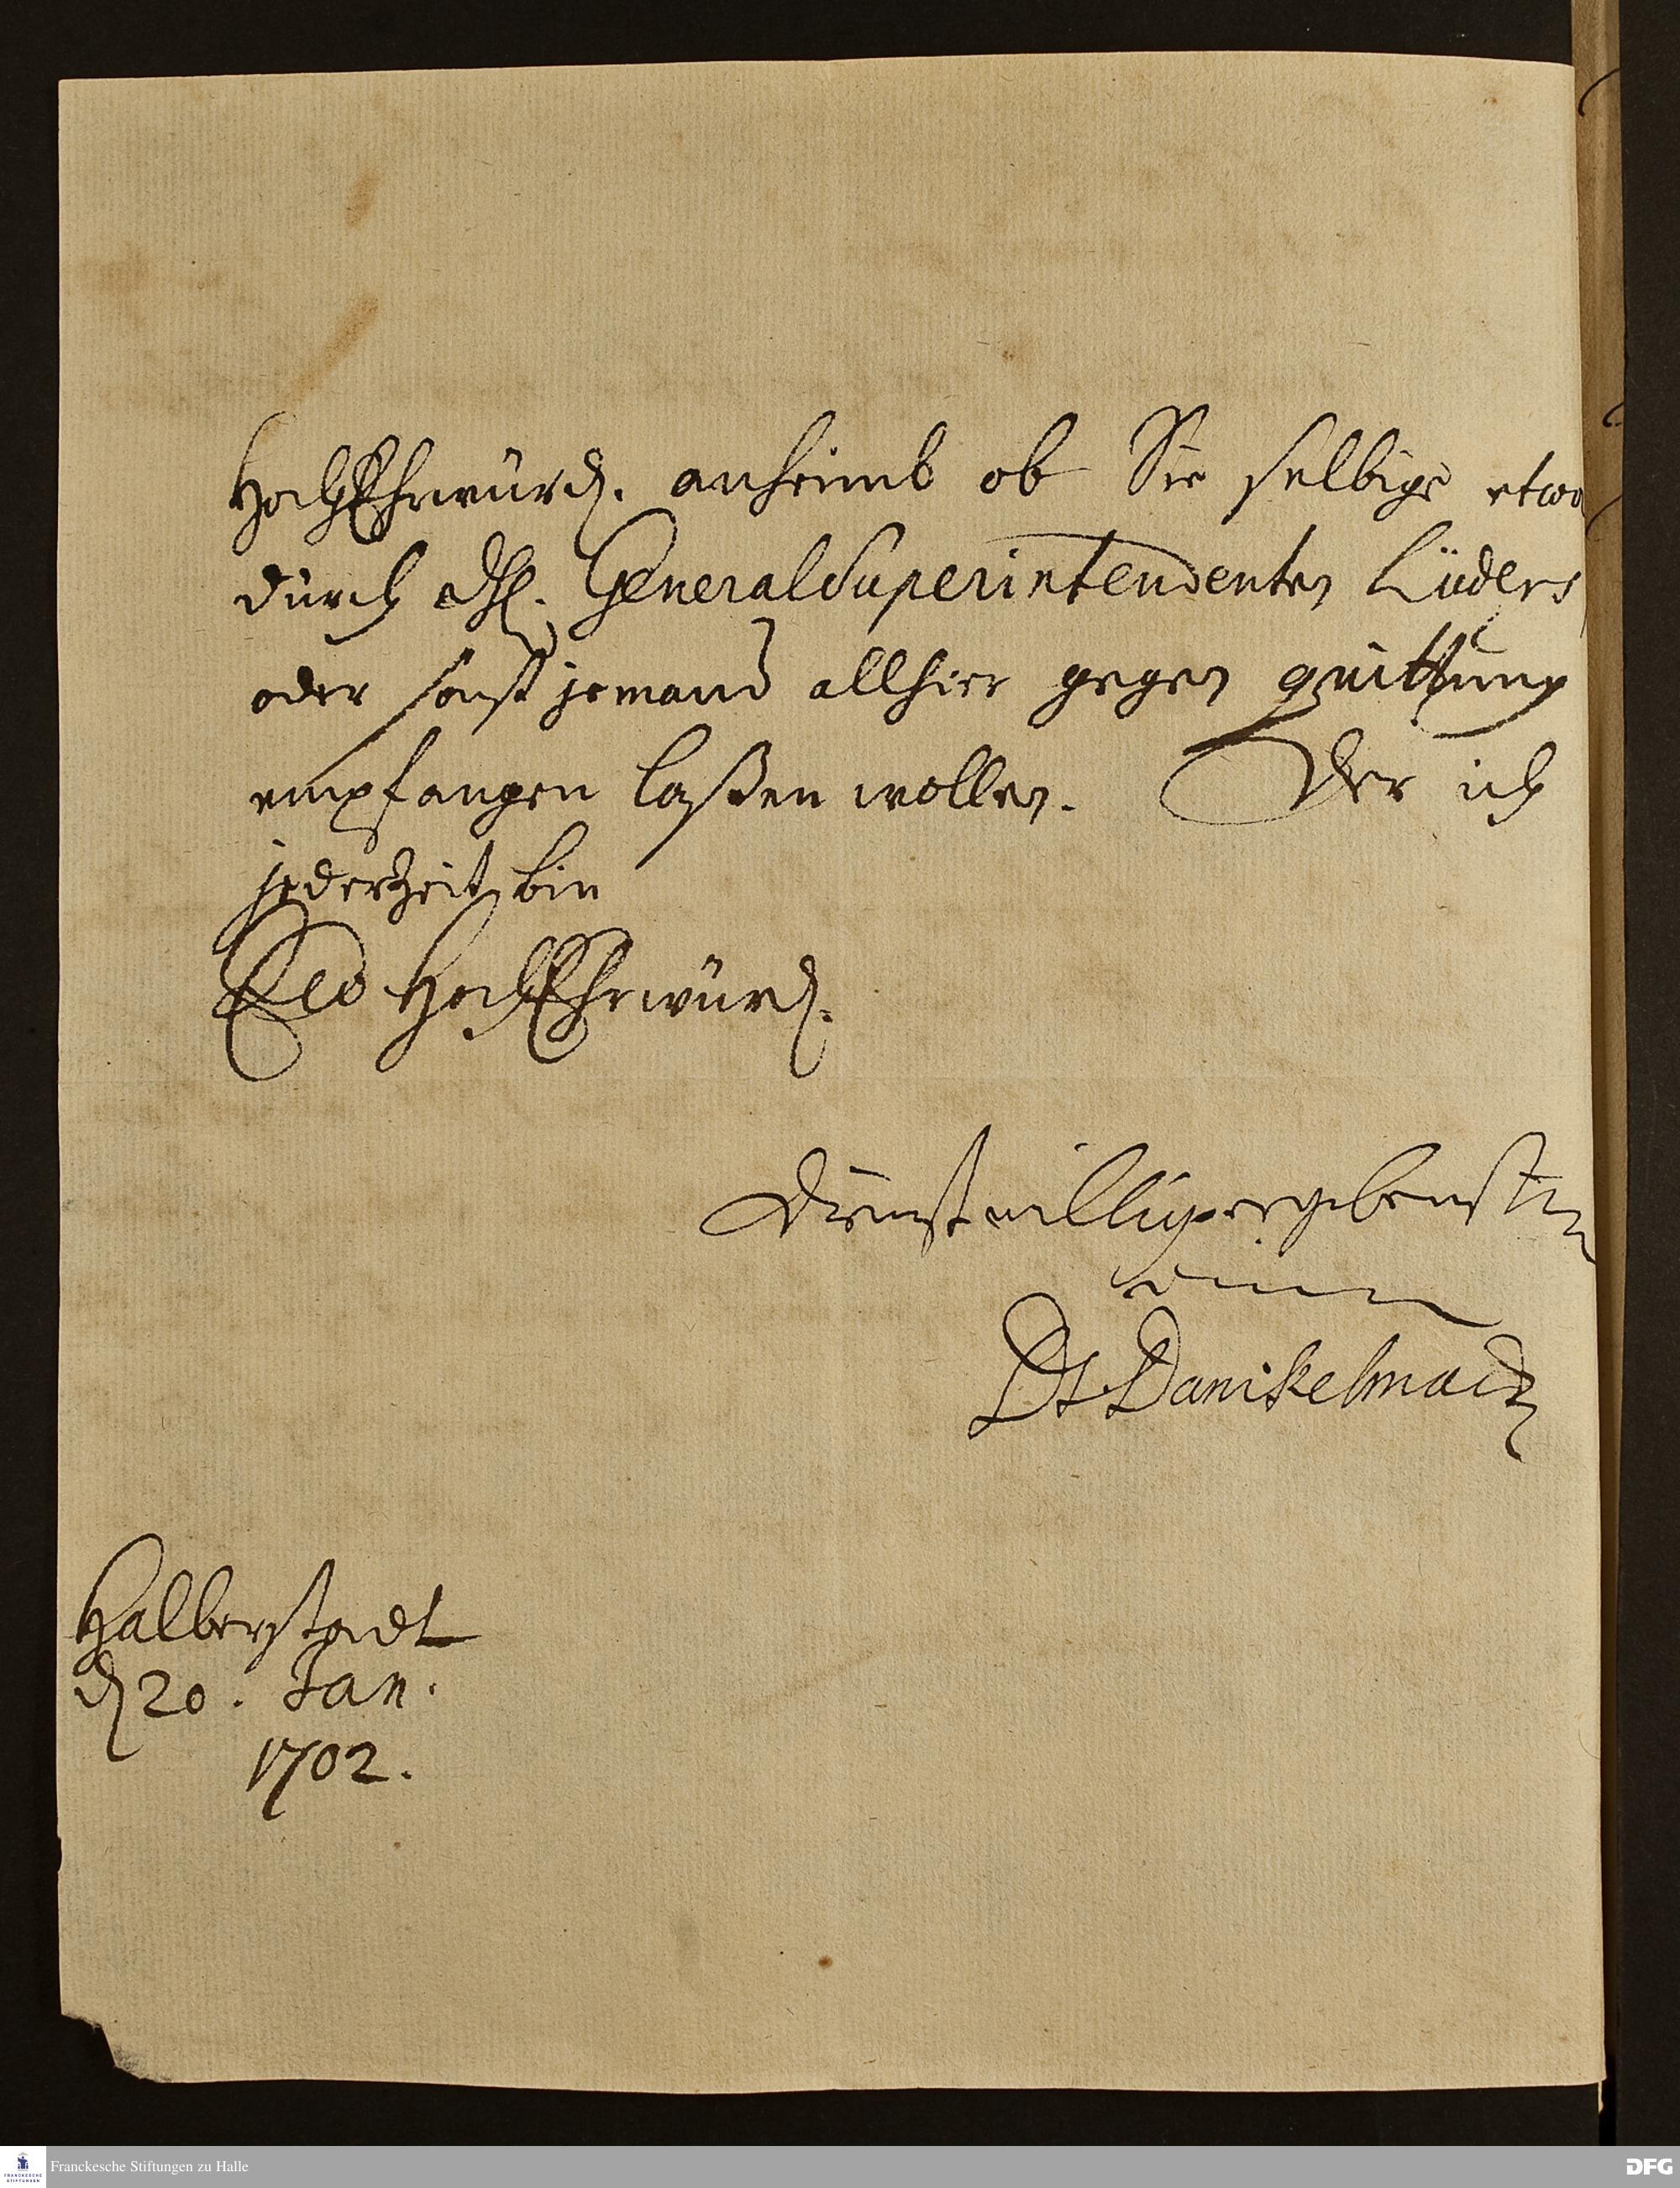 HochEhrwürd. anheimb ob Sie selbige etwa
durch H. GeneralSuperintendenten Lüders
oder sonst jemand allhier gegen quittung
empfangen laßen wollen. Der ich
jederzeit bin
Ew HochEhrwürd.
Dienstwilligergebenster
Danckelmann
Halberstadt
d 20. Jan.
1702.
Franckesche Stiftungen zu Halle
FRANCKESCHE
STIFTUNGEN
DFG